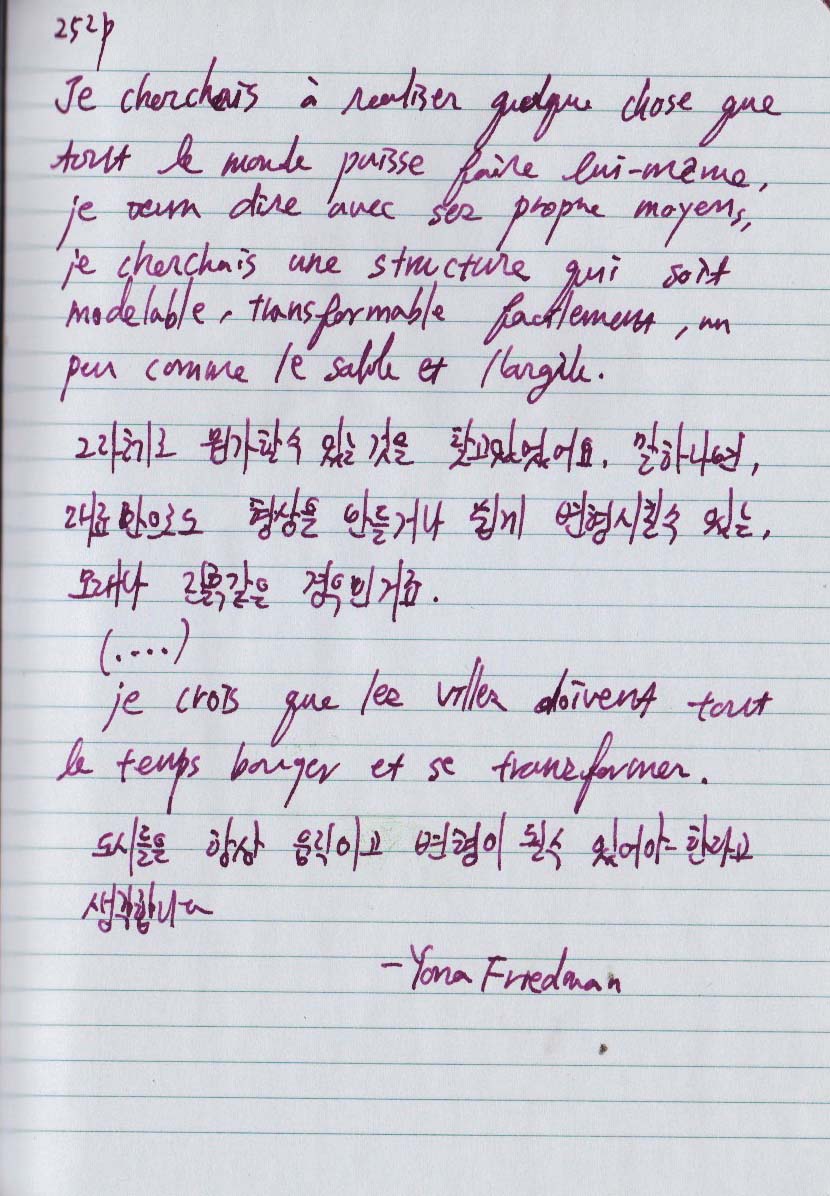 252p
Je cherchais à realiser quelque chose que
tout le monde puisse faire lui-même,
je veux dire avec ses propre moyens,
je cherchais une structure qui soit
modelable, transformable facilement, un
peu comme le sable et l'argile.
뭔가할수 있는 것을 찾고있었어요. 말하자면,
재료만으로도 형상을 만들거나 쉽게 변형시킬수 있는,
모래나 진흙같은 경우인거죠.
(....)
je crois que les villes doivent tout
le temps bouger et se transformer.
도시들은 항상 움직이고 변형이 될수 있어야 한다고
생각합니다
- Yona Friedman